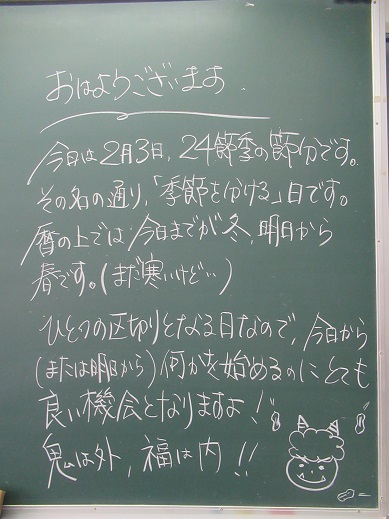 おはようございます.
今日は2月3日,24節季の節分です。
その名の通り,「季節を分ける」日です。
暦の上では今日までが冬,明日から
春です。(まだ寒いけど…)
ひとつの区切りとなる日なので,今日から
(または明日から)何かを始めるのにとても
良い機会となりますよ!
鬼は外,福は内!!